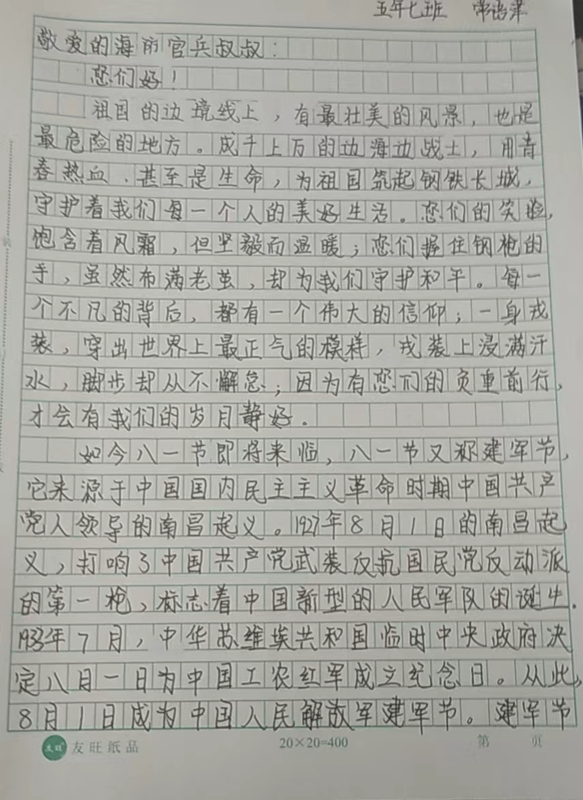 五年七班 常语津
敬爱的海防官兵叔叔：
您们好！
祖国的边境线上，有最壮美的风景，也是
最危险的地方。成千上万的边海边战士，用青
春热血．甚至是生命，为祖国筑起钢铁长城，
守护着我们每一个人的美好生活。您们的笑脸，
饱含着风霜，但坚毅而温暖；您们握住钢枪的
手，虽然布满老茧，却为我们守护和平。每一
个不凡的背后，都有一个伟大的信仰；一身戎
装，穿出世界上最正气的模样，戎装上浸满汗
水，脚步却从不懈怠；因为有您们的负重前行，
才会有我们的岁月静好．
如今八一节即将来临，八一节又称建军节，
它来源于中国国内民主主义革命时期中国共产
党人领导的南昌起义。1927年8月1日的南昌起
义，打响了中国共产党武装反抗国民党反动派
的第一枪，标志着中国新型的人民军队的诞生．
1933年7月，中华苏维埃共和国临时中央政府决
定八月一日为中国工农红军成立纪念日。从此，
8月1日成为中国人民解放军建军节。建军节
友旺 友旺纸品 20×20=400 第 页